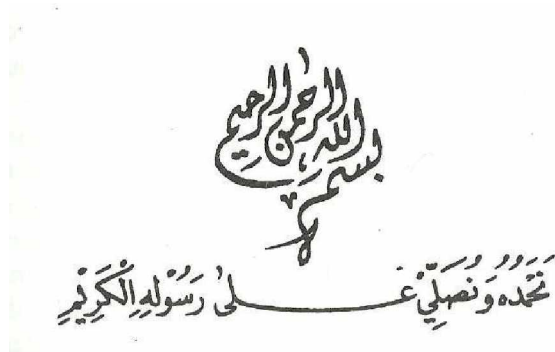 بسم الله الرحمن الرحيم
نَحْمَدُهُ وَنُصَلِّيْ عَلٰى رَسُوْلِهِ الْكَرِيْمِ